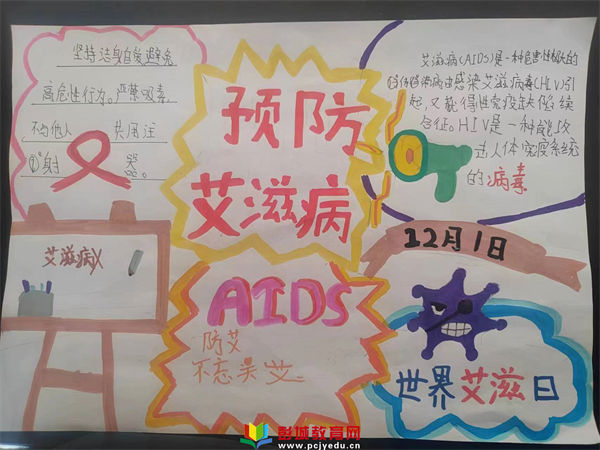 坚持洁身自爱避免
高危性行为。严禁吸毒,
不与他人 共用注
①射 器。
预防
艾滋病
艾滋病(AIDS)是一种危害性极大的
传染病由感染艾滋病毒(HIV)引
起,又
征。HIV是一种能攻
击人体免疫系统
的病毒
艾滋病
12月1日
AIDS
防艾
不忘 艾
世界艾滋日
彭城教育网
www.pcjyedu.cn